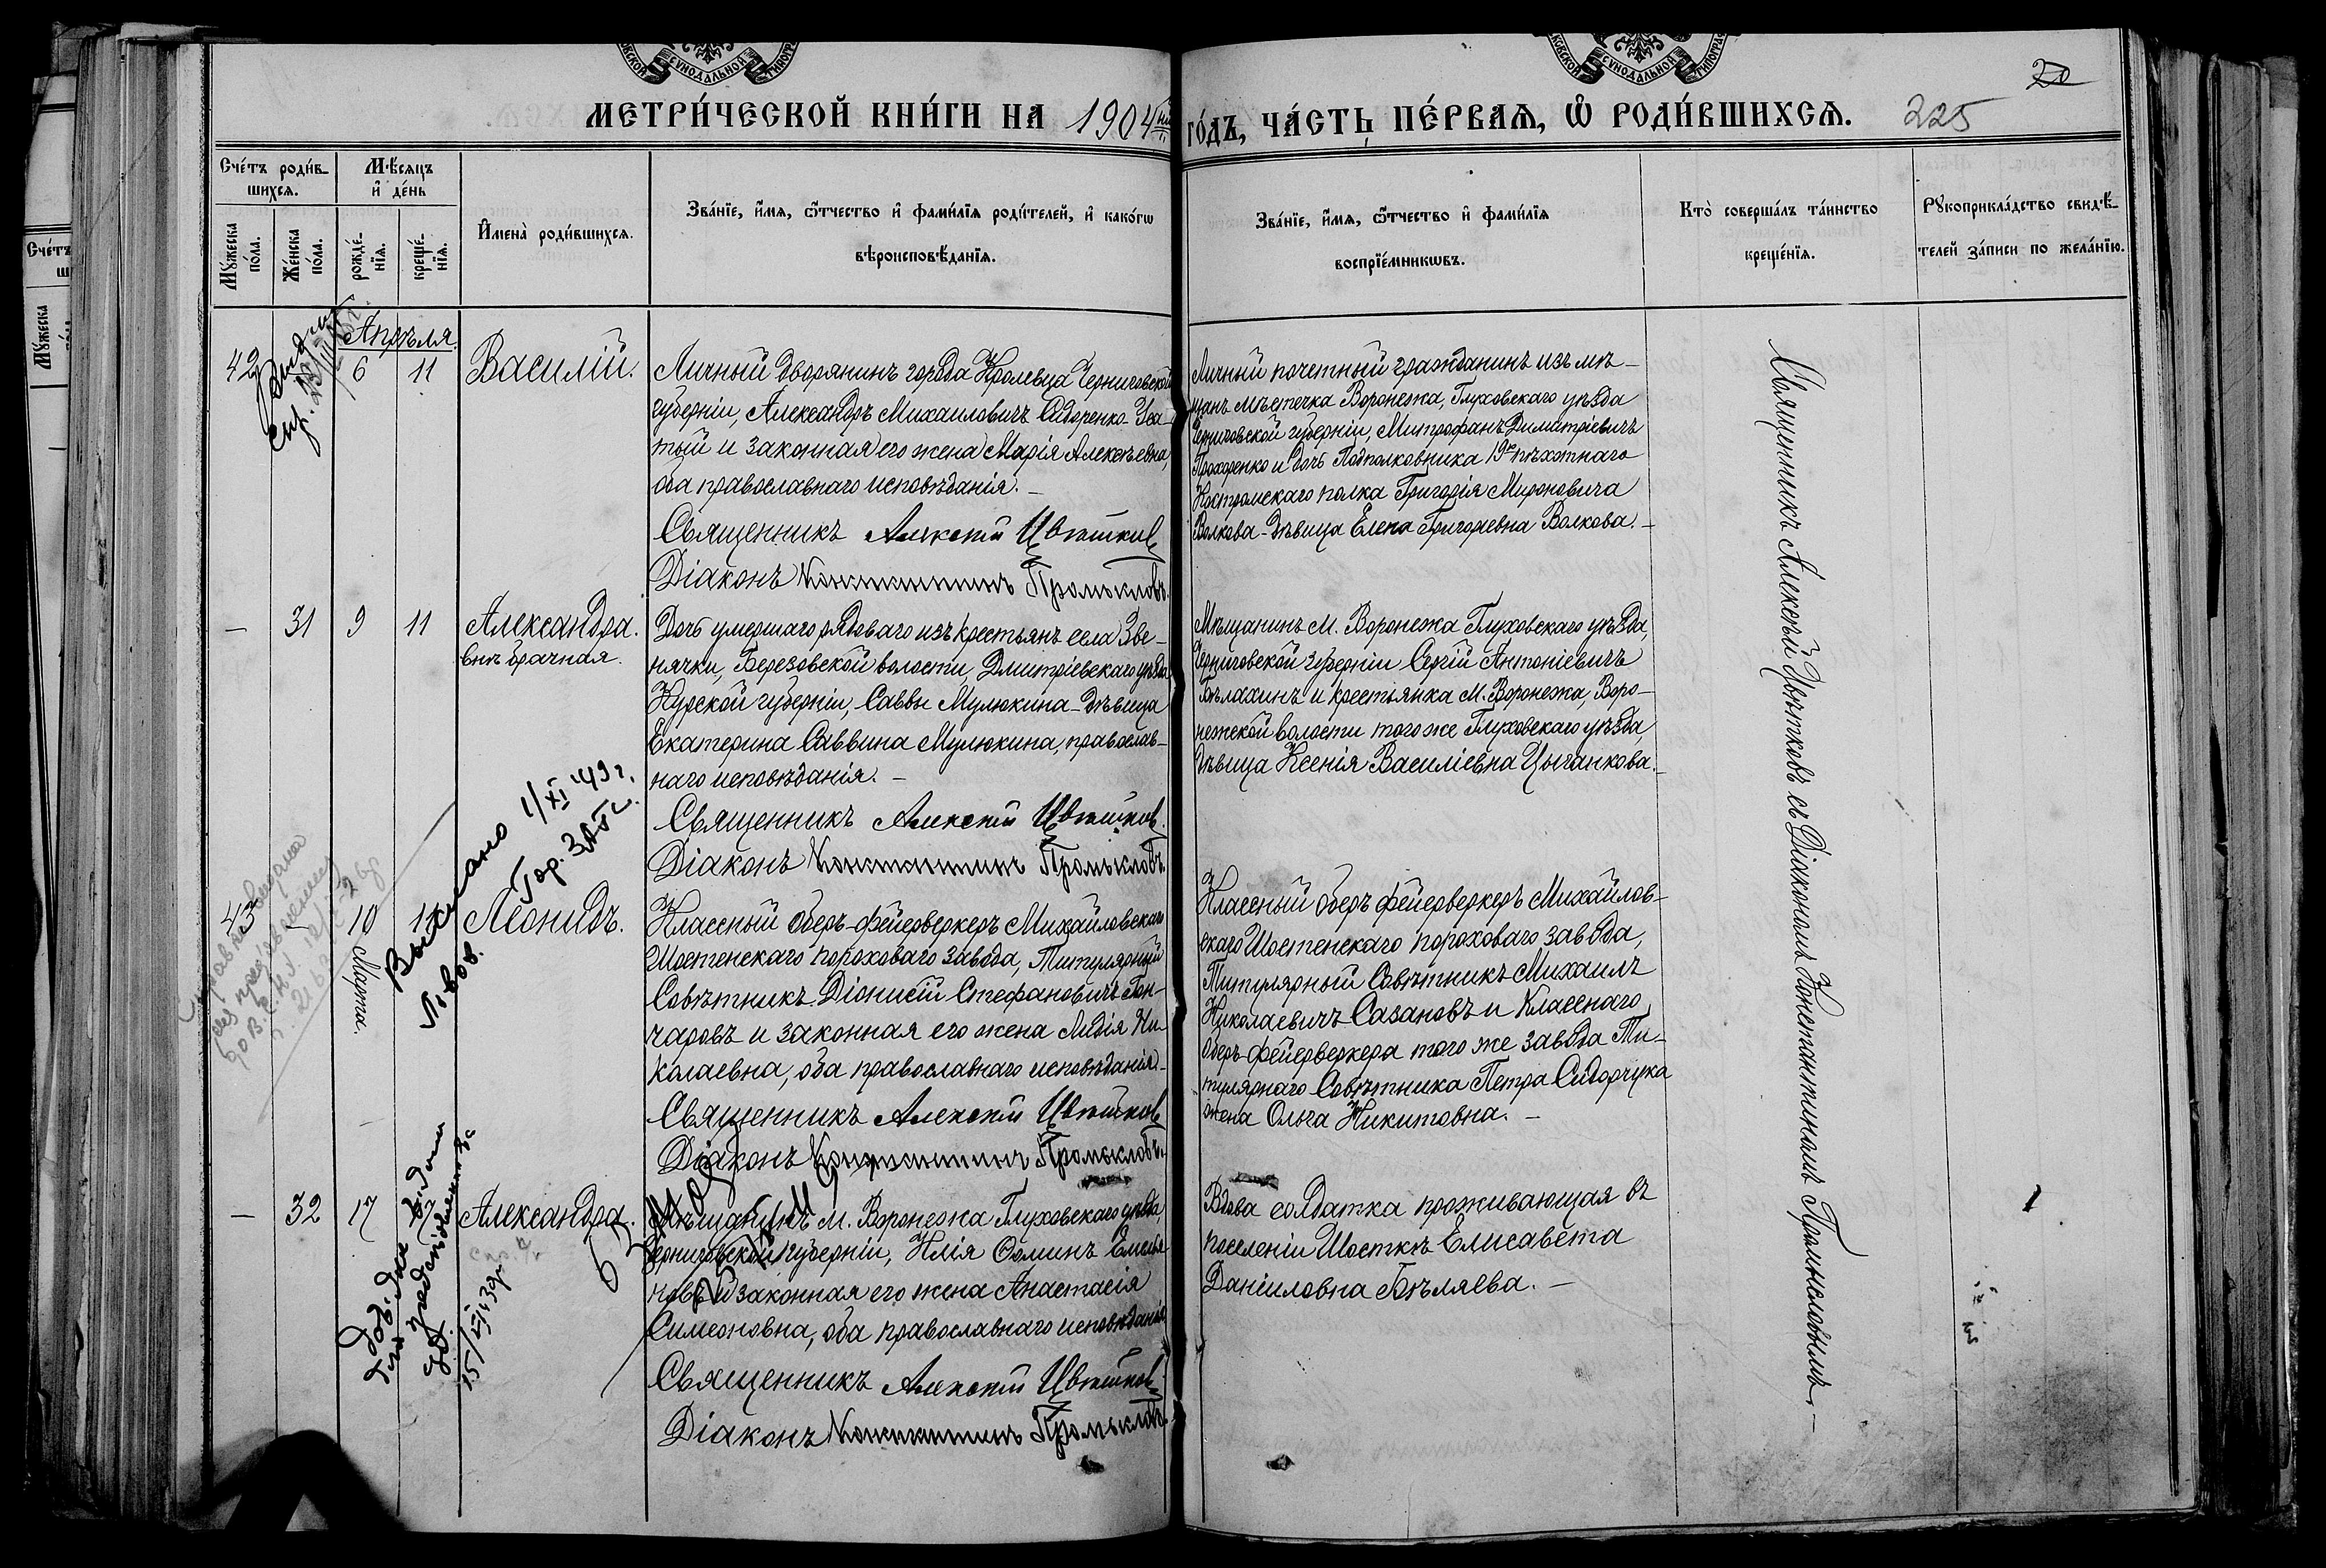 МЕТРИ́ЧЕСКОЙ КНИ́ГИ НА 1904й
го́дъ, ЧА́СТЬ ПЕ́РВАѦ, Ѡ҆ РОДИ́ВШИХСѦ.
225
20
Сче́тъ роди́в-
шихсѧ.
Мѣ́сѧцъ
и҆ де́нь
Мꙋ́жеска по́ла.
Же́нска по́ла.
рожде́-
нїѧ.
креще́-
нїѧ.
И҆мена̀ роди́вшихсѧ.
Зва́нїе, и҆́мѧ, ѻ҆́тчество и҆ фами́лїѧ роди́телей, и҆ како́гѡ
вѣроисповѣ́данїѧ.
Зва́нїе, и҆́мѧ, ѻ҆́тчество и҆ фами́лїѧ
воспрїе́мникѡвъ.
Кто̀ соверша́лъ та́инство
креще́нїѧ.
Рꙋкоприкла́дство свидѣ́-
телей за́писи по жела́нїю.
Апрѣля
42 6 11 Василій.
Личный дворянинъ города Кролевца Черниговской
губерніи, Александръ Михаиловичъ Сидоренко-Уса-
тый и законная его жена Марія Алексѣевна,
оба православнаго исповѣданія. –
Священникъ Алексій Цвѣтков
Діаконъ Константинъ Промысловъ.
Личный почетный гражданинъ изъ мѣ-
щанъ мѣстечка Воронежа, Глуховскаго уѣзда
Черниговской губерніи, Митрофанъ Димитріевичъ
Прохоренко и дочь Подполковника 19го пѣхотнаго
Костромскаго полка Григорія Мироновича
Волкова - дѣвица Елена Григорьевна Волкова. –
– 31 9 11 Александра.
внѣбрачная.
Дочь умершаго рядоваго изъ крестьянъ села Зве-
нячки, Березовской волости, Дмитріевскаго уѣзда
Курской губерніи, Саввы Мулюкина - дѣвица
Екатерина Саввина Мулюкина, православ-
наго исповѣданія. –
Священникъ Алексій Цвѣтков
Діаконъ Константинъ Промысловъ.
Мѣщанинъ м. Воронежа Глуховскаго уѣзда,
Черниговской губерніи Сергій Антоніевичъ
Бѣлахинъ и крестьянка м. Воронежа, Воро-
нежской волости того же Глуховскаго уѣзда,
дѣвица Ксенія Василіевна Цыганкова. –
43 10 11 Леонидъ.
Марта.
Классный Оберъ-фейерверкеръ Михайловскаго
Шостенскаго пороховаго завода, Титулярный
Совѣтникъ Діонисій Стефановичъ Гон-
чаровъ и законная его жена Лидія Ни-
колаевна, оба православнаго исповѣданія. –
Священникъ Алексій Цвѣтков
Діаконъ Константинъ Промысловъ.
Классный Оберъ фейерверкеръ Михайлов-
скаго Шостенскаго пороховаго завода,
Титулярный Совѣтникъ Михаилъ
Николаевичъ Сазановъ и Класснаго
Оберъ-фейерверкера того же завода Ти-
тулярнаго Совѣтника Петра Сидорчука
жена Ольга Никитовна. –
– 32 17 Александра.
Мѣщанинъ м. Воронежа Глуховскаго уѣзда,
Черниговской губерніи, Илія Ѳоминъ Емелья-
новъ и законная его жена Анастасія
Симеоновна, оба православнаго исповѣданія
Священникъ Алексій Цвѣтков
Діаконъ Константинъ Промысловъ.
Вдова солдатка проживающая въ
поселеніи Шосткѣ Елисавета
Даніиловна Бѣляева. –
Священникъ Алексѣй Цвѣтковъ съ Діакономъ Константиномъ Промысловымъ. –
Выслано 1/XI 49 г.
Гор. ЗАГС.
Счетъ
Мꙋ́жеска